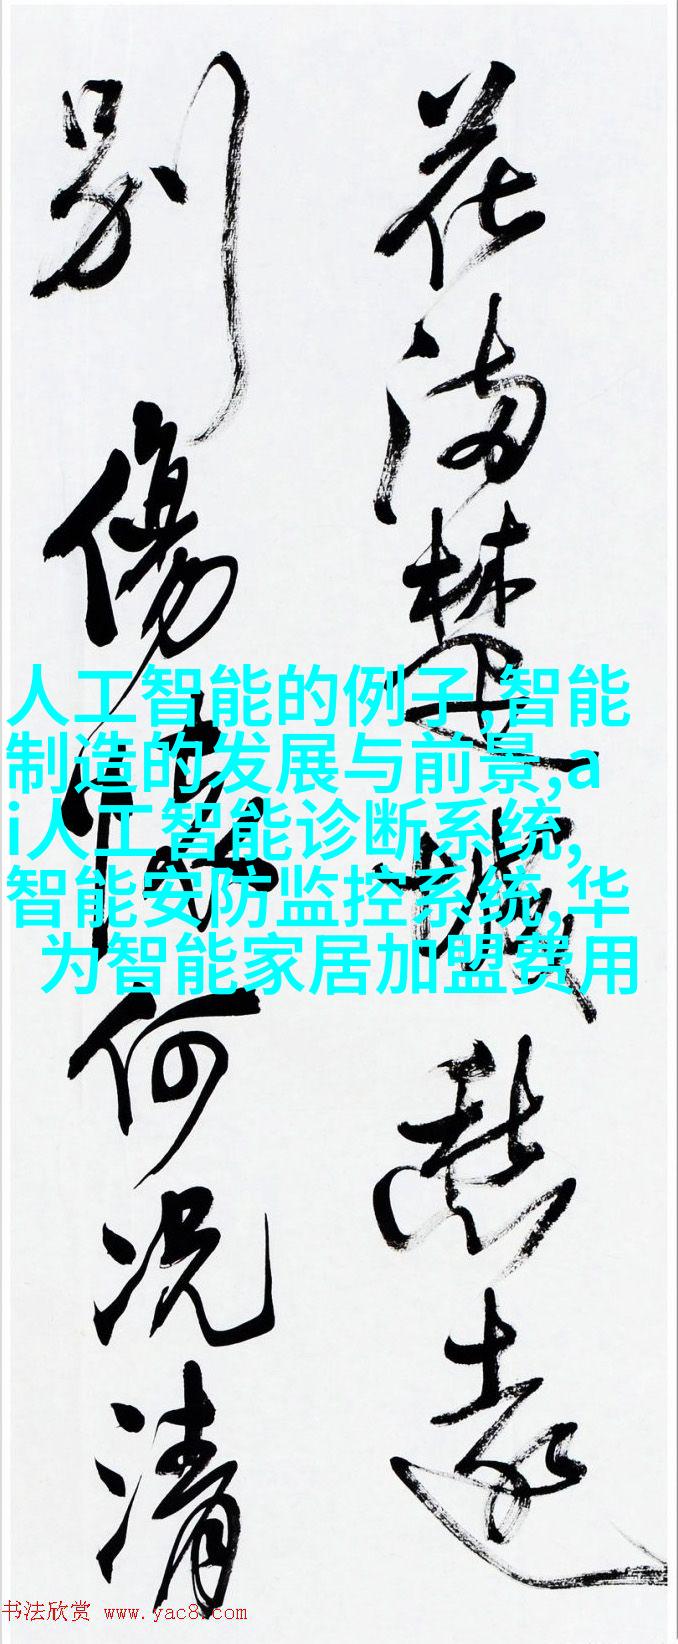 花滿楚城愁遠
别傷懷何況清
人工智能的例子,智能
制造的发展与前景,a
i人工智能诊断系统,
智能安防监控系统,华
为智能家居加盟费用
书法欣赏 www.yac8.com